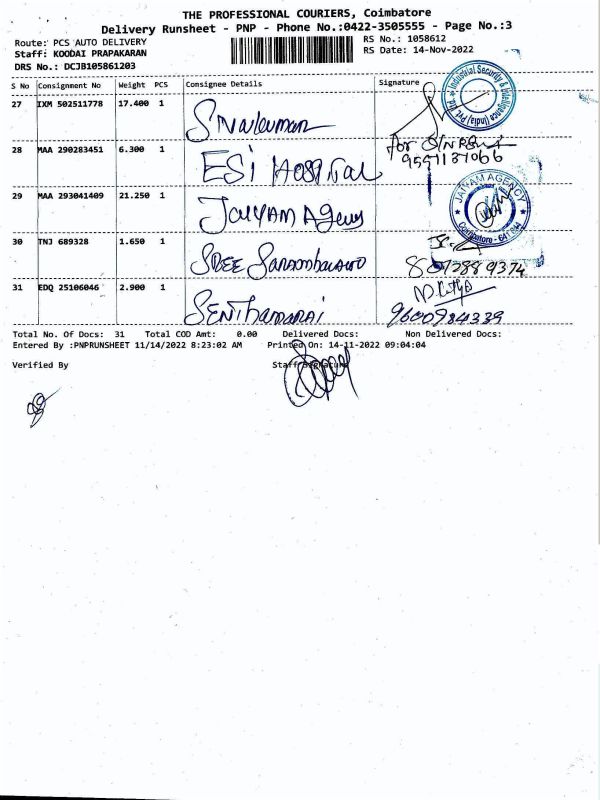 THE PROFESSIONAL COURIERS, Coimbatore
Delivery Runsheet - PNP - Phone No.:0422-3505555 - Page No.:3
Route: PCS AUTO DELIVERY
RS No.: 1058612
Staff: KOODAI PRAPAKARAN
RS Date: 14-Nov-2022
DRS No.: DCJB105861203
S No Consignment No Weight PCS Consignee Details Signature
27 IXM 502511778 17.400 1
Industrial Security & Intelligence (India) Pvt. Ltd.
28 MAA 290283451 6.300 1 ESI HOSPITAL
9597137066
29 MAA 293041409 21.250 1 JAIYAM Agency
JAIYAM AGENCY
30 TNJ 689328 1.650 1 SREE
31 EDQ 25106046 2.900 1 SENTHAMARAI
9600984339
Total No. Of Docs: 31 Total COD Amt: 0.00 Delivered Docs: Non Delivered Docs:
Entered By :PNPRUNSHEET 11/14/2022 8:23:02 AM Printed On: 14-11-2022 09:04:04
Verified By Staff Signature